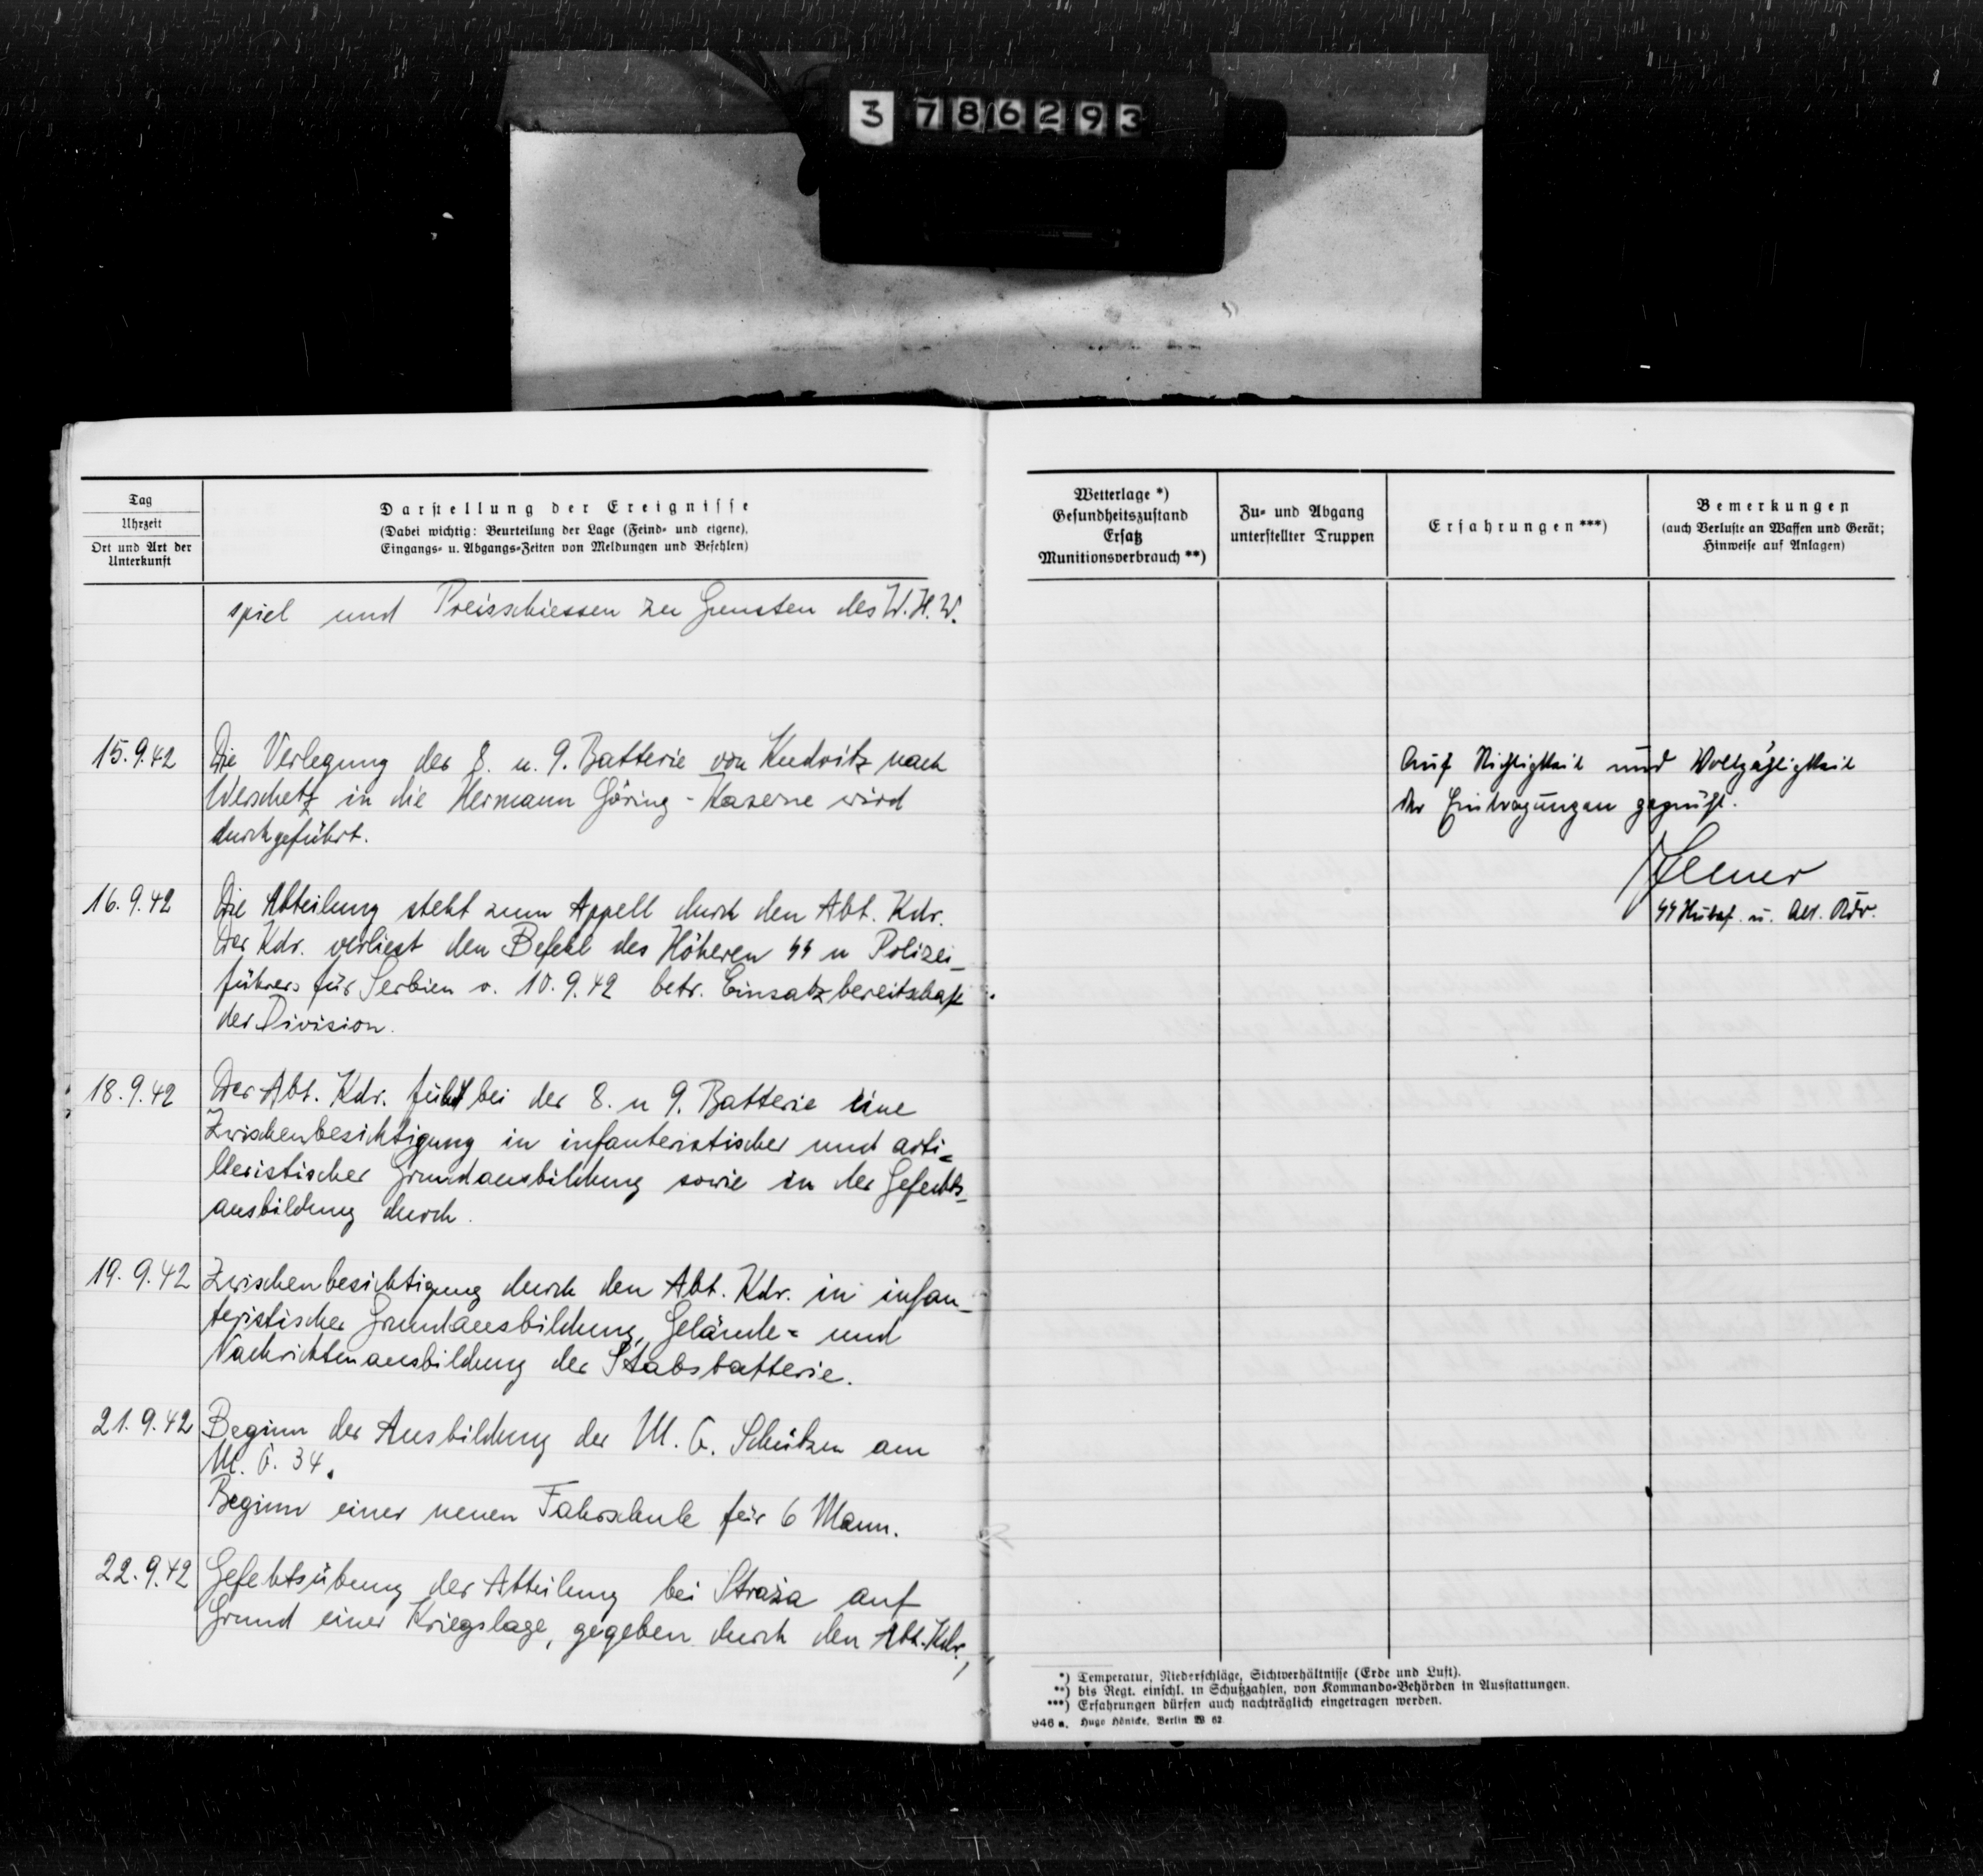 3 786293
Tag
Uhrzeit
Ort und Art der
Unterkunft
Darstellung der Ereignisse
(Dabei wichtig: Beurteilung der Lage (Feind- und eigene),
Eingangs- u. Abgangs-Zeiten von Meldungen und Befehlen)
spiel und Preisschiessen zu Gunsten des W.H.W.
15.9.42 Die Verlegung der 8. u. 9. Batterie von Kudritz nach
Werschetz in die Hermann Göring-Kaserne wird
durchgeführt.
16.9.42 Die Abteilung steht zum Appell durch den Abt. Kdr.
Der Kdr. verliest den Befehl des Höheren SS u Polizei-
führers für Serbien v. 10.9.42 betr. Einsatzbereitschaft
der Division.
18.9.42 Der Abt. Kdr. führt bei der 8. u 9. Batterie eine
Zwischenbesichtigung in infanteristischer und arti=
lleristischer Grundausbildung sowie in der Gefechts-
ausbildung durch.
19.9.42 Zwischenbesichtigung durch den Abt. Kdr. in infan-
teristischer Grundausbildung, Gelände= und
Nachrichtenausbildung der Stabsbatterie.
21.9.42 Beginn der Ausbildung der M.G. Schützen am
M.G. 34.
Beginn einer neuen Fahrschule für 6 Mann.
22.9.42 Gefehtsübung der Abteilung bei Straža auf
Grund einer Kriegslage, gegeben durch den Abt.-Kdr.,
Wetterlage *)
Gesundheitszustand
Ersatz
Munitionsverbrauch **)
Zu- und Abgang
unterstellter Truppen
Erfahrungen ***)
Bemerkungen
(auch Verluste an Waffen und Gerät;
Hinweise auf Anlagen)
Auf Richtigkeit und Vollzähligkeit
der Eintragungen geprüft.
SS Hstuf. u. Abt. Kdr.
*) Temperatur, Niederschläge, Sichtverhältnisse (Erde und Luft).
**) bis Regt. einschl. in Schußzahlen, von Kommando-Behörden in Ausstattungen.
***) Erfahrungen dürfen auch nachträglich eingetragen werden.
946 a. Hugo Hönicke, Berlin W 62